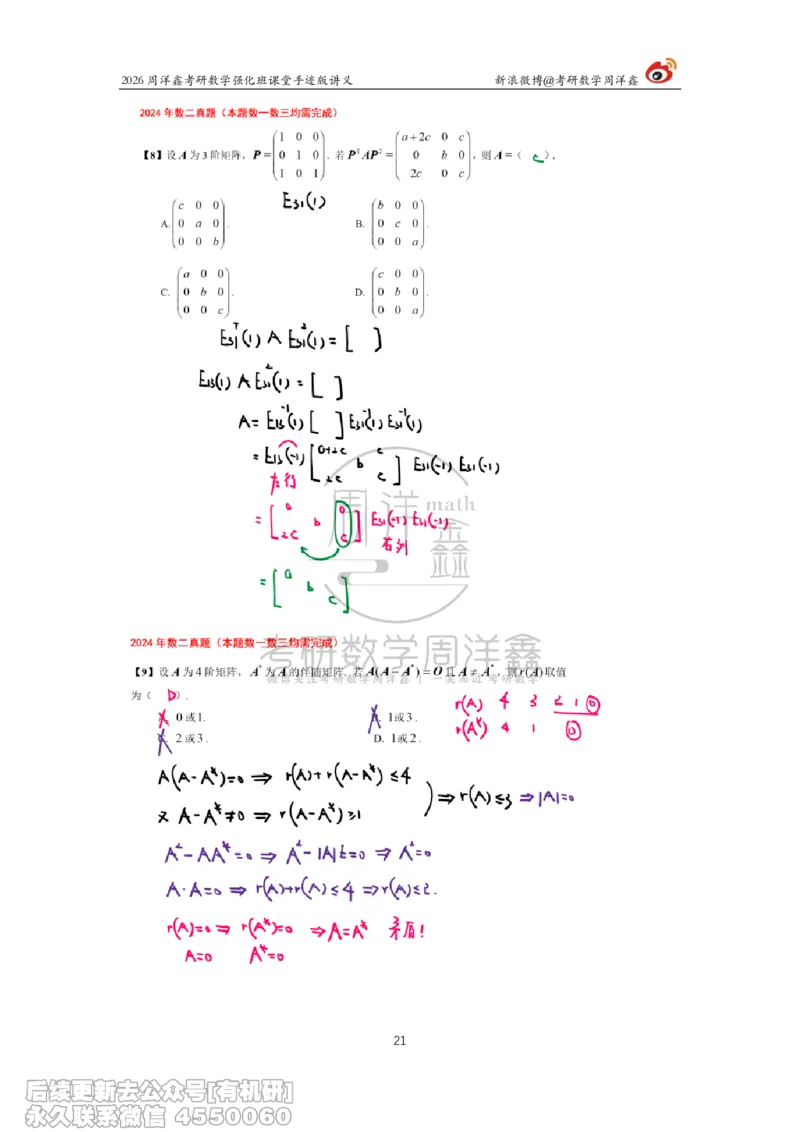 2026 周洋鑫考研数学强化班课堂手迹版讲义 新浪微博@考研数学周洋鑫
2024 年数二真题（本题数一数三均需完成）
【8】设 A 为 3 阶矩阵，P = (1 0 0; 0 1 0; 1 0 1)，若 PᵀAP² = (a+2c 0 c; 0 b 0; 2c 0 c)，则 A =（ C ）.
E₃₁(1)
A. (c 0 0; 0 a 0; 0 0 b). B. (b 0 0; 0 c 0; 0 0 a).
C. (a 0 0; 0 b 0; 0 0 c). D. (c 0 0; 0 b 0; 0 0 a).
E₃₁ᵀ(1) A E₃₁²(1) = [ ]
E₁₃(1) A E₃₁²(1) = [ ]
A = E₁₃⁻¹(1) [ ] E₃₁⁻¹(1) E₃₁⁻¹(1)
= E₁₃(-1) [a+2c c; b; 2c c] E₃₁(-1) E₃₁(-1)
左行
= [a 0; b; 2c c] E₃₁(-1) E₃₁(-1)
右列
= [a b c]
周洋鑫 math
考研数学周洋鑫
2024 年数二真题（本题数一数三均需完成）
【9】设 A 为 4 阶矩阵，A* 为 A 的伴随矩阵，若 A(A − A*) = O 且 A ≠ A*，则 r(A) 取值
为（ D ）.
r(A) 4 3 2 1 0
A. 0或1. B. 1或3.
r(A*) 4 1 0
C. 2或3. D. 1或2.
A(A-A*)=0 ⇒ r(A)+r(A-A*)≤4
又 A-A*≠0 ⇒ r(A-A*)≥1
⇒ r(A)≤3 ⇒ |A|=0
A²-AA*=0 ⇒ A²-|A|E=0 ⇒ A²=0
A·A=0 ⇒ r(A)+r(A)≤4 ⇒ r(A)≤2.
r(A)=0 ⇒ r(A*)=0 ⇒ A=A* 矛盾!
A=0 A*=0
21
后续更新去公众号[有机研]
永久联系微信 4550060